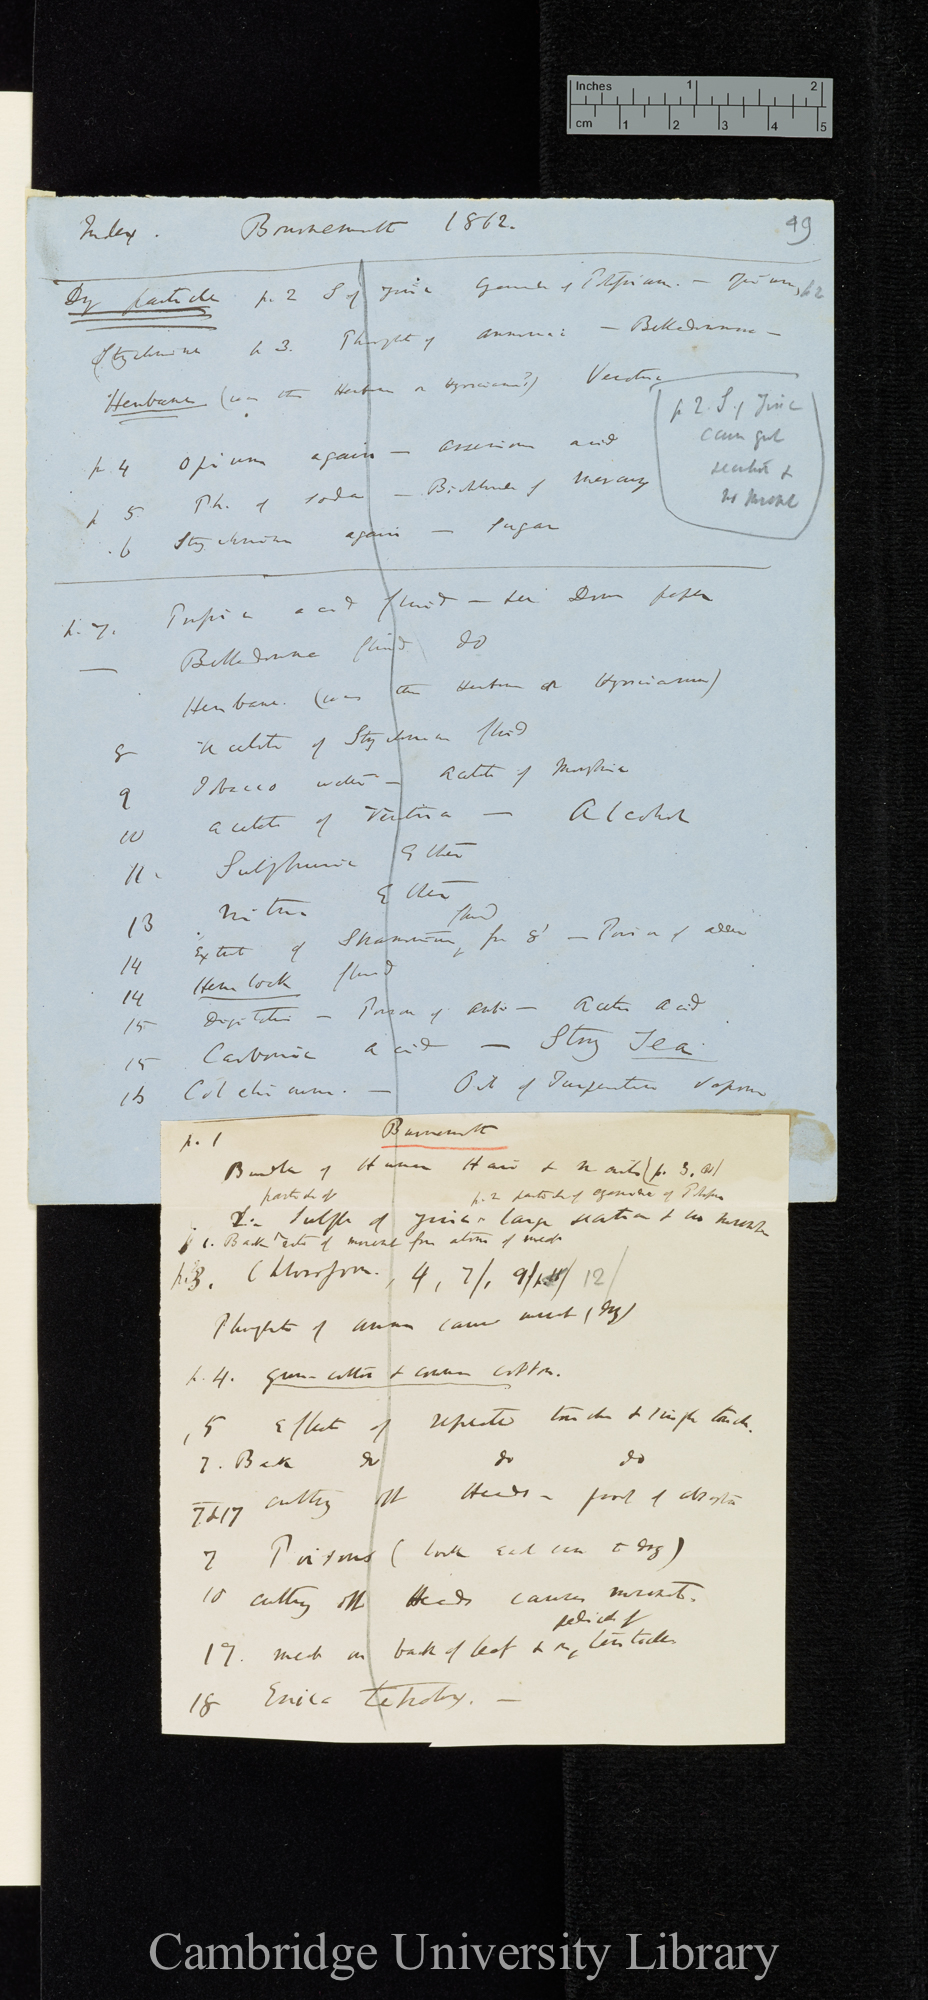 Inches 1 2
cm 1 2 3 4 5
Index. Bournemouth 1862. 49
Dry particle p. 2 S of Zinc of Pepsin. — Opium, p2
Strychnine p 3. Phosphate of ammonia — Belladonna —
Henbane (was this Henbane or Hyosciamus?) Veratria
p 2. S. of Zinc
caused great
secretion &
no movt
p. 4 Opium again — arsenious acid
p 5 Ph. of Soda — Bichloride of Mercury
. 6 Strychnine again — Sugar
p. 7. Pepsin acid fluid — see Down paper
— Belladonna fluid do
Henbane. (was this Henbane or Hyosciamus)
8 Acetate of Strychnine fluid
9 Tobacco water — Acetate of Morphia
10 acetate of Veratria — Alcohol
11. Sulphuric Ether
13 . Nitric Ether
14 Extract of Stramonium fluid, for 8' — Poison of adder
14 Hemlock fluid
15 Digitalis — Poison of — Acetic acid
15 Carbonic acid — Strong Tea
16 Colchicum. — Oil of Turpentine vapour
p. 1 Bournemouth
Bundle of Human Hair & Nails (p. 3,
particle of p. 2 particle of of Pepsin
Sulph of Zinc large secretion & no movt
p 1. Back rate of movt from atoms of meat
p. 3. Chloroform. , 4, 7/, 9/ 12/
Phosphate of amm caused movt (dry)
p. 4. gun-cotton & common cotton.
, 5 Effects of repeated touches & single touch.
7. Back do do do
7 & 17 cutting off Heads — proof of
7 Poisons (look each case to dry)
10 cutting off Heads causes movements.
17. meat on back of leaf & on pedicels of tentacles
18 Erica tetralix. —
Cambridge University Library